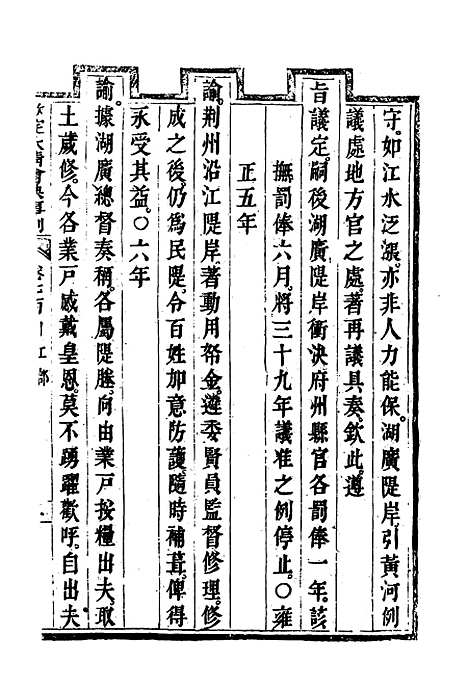 守。如江水泛漲。亦非人力能保。湖廣隄岸引黃河例
議處地方官之處。著再議具奏。欽此。遵
旨議定。嗣後湖廣隄岸衝決。府州縣官各罰俸一年。該
撫罰俸六月。將三十九年議准之例停止。○雍
正五年
諭。荆州沿江隄岸。著動用帑金。遴委賢員監督修理。修
成之後。仍爲民隄。令百姓加意防護。隨時補葺。俾得
永受其益。○六年
諭。據湖廣總督奏稱。各屬隄塍。向由業戶按糧出夫。取
土歲修。今各業戶感戴皇恩。莫不踴躍歡呼。自出夫
欽定大清會典事例 卷 工部